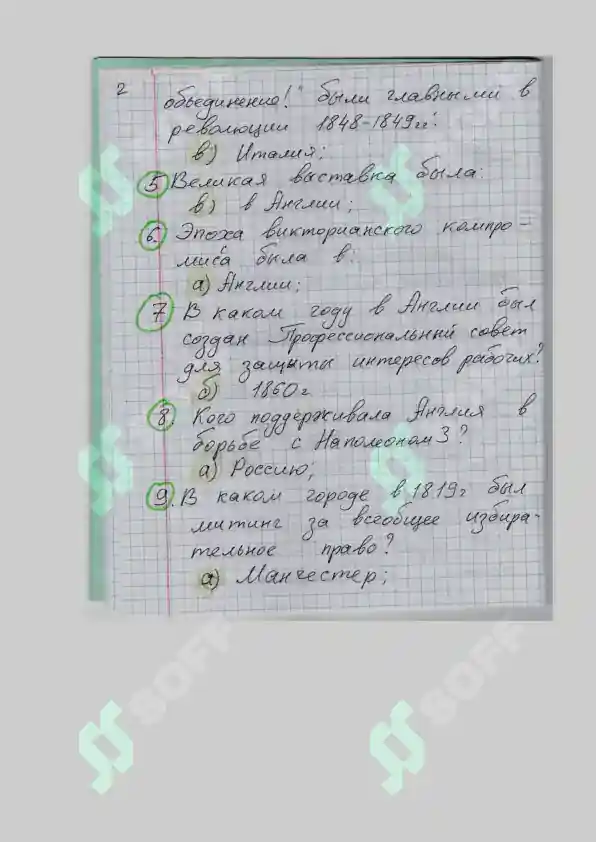 2
объединение!" были главными в
революции 1848-1849гг:
в) Италия;
5 Великая выставка была:
в) в Англии;
6. Эпоха викторианского компро-
миса была в:
а) Англии;
7 В каком году в Англии был
создан Профессиональный совет
для защиты интересов рабочих?
б) 1860г
8. Кого поддерживала Англия в
борьбе с Наполеоном 3?
а) Россию;
9. В каком городе в 1819г был
митинг за всеобщее избира-
тельное право?
а) Манчестер;
SOFF
SOFF